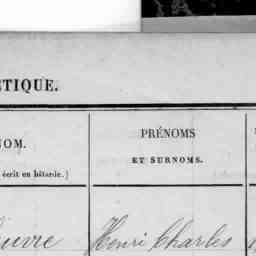 ÉTIQUE.
NOM.
écrit en bâtarde.)
PRÉNOMS
ET SURNOMS.
Henri Charles